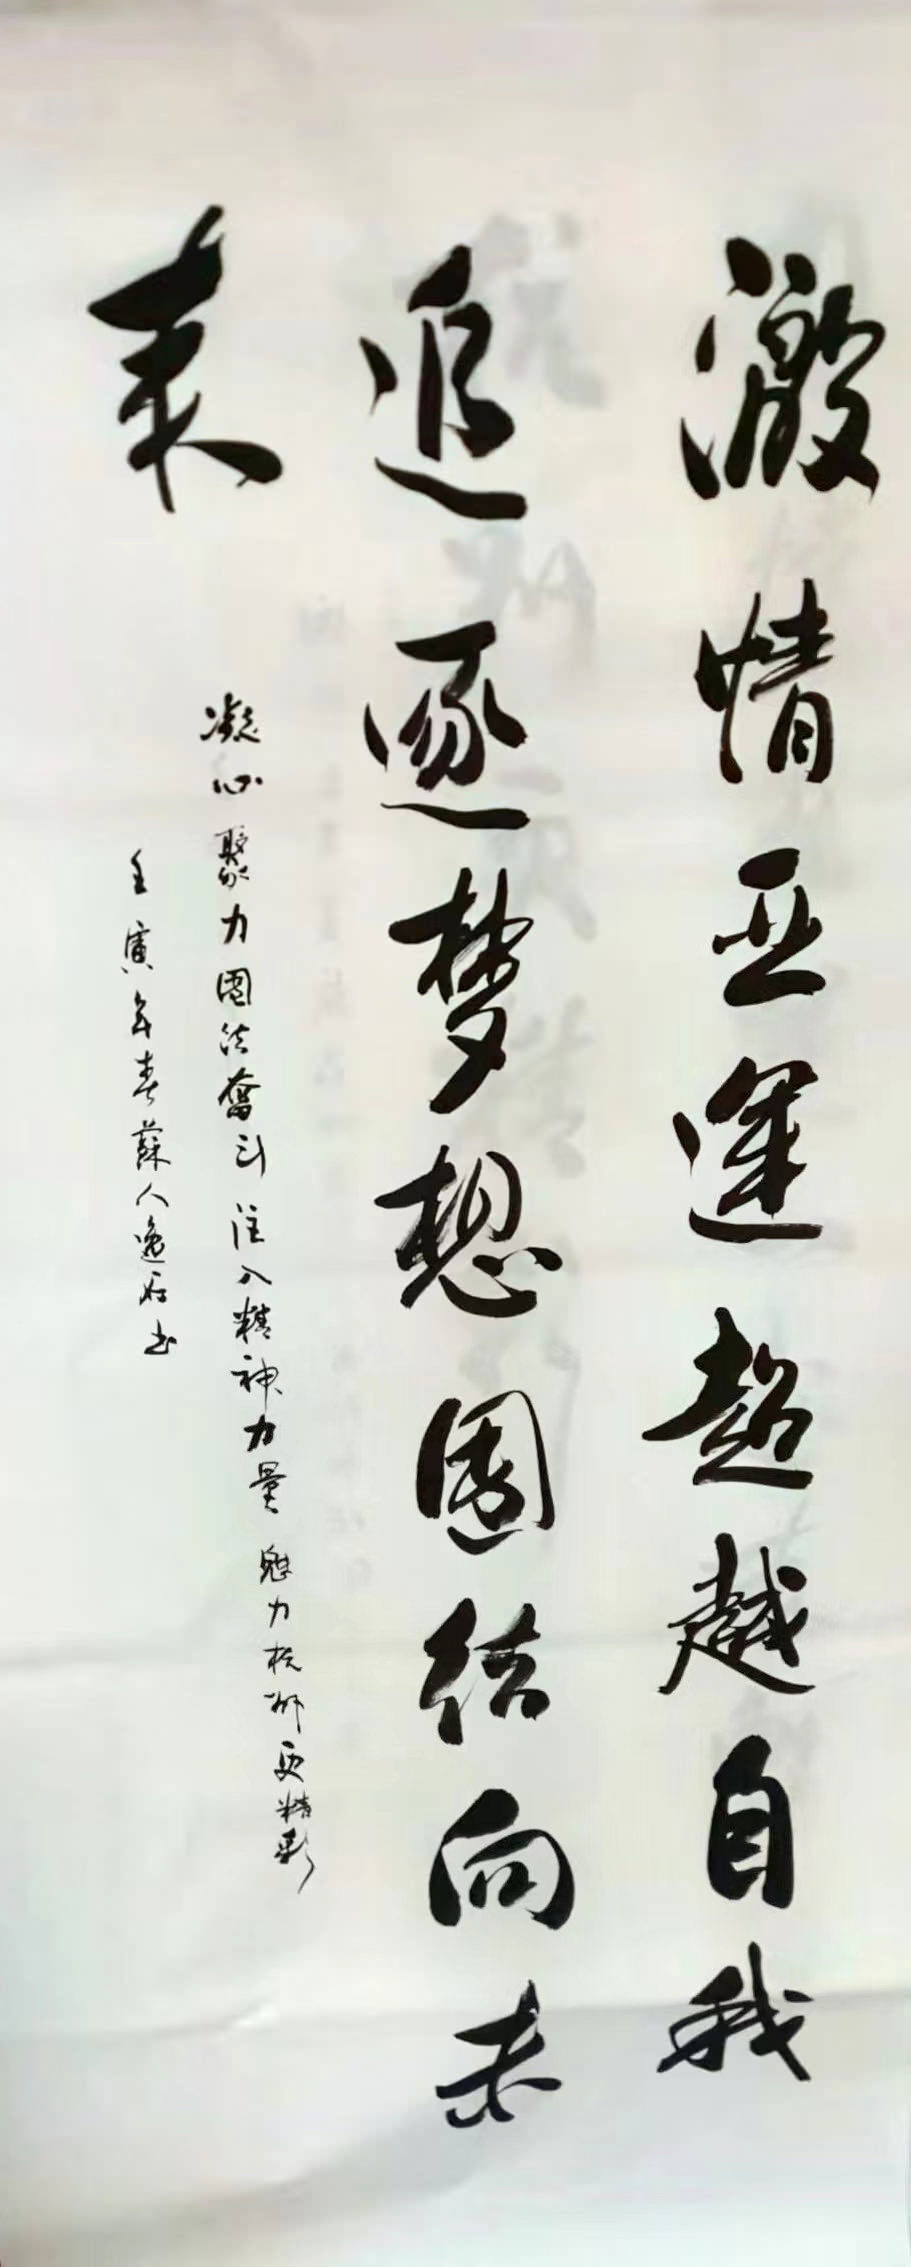 激情亚運超越自我
追逐梦想團结向未
来
凝心聚力團结奮斗注入精神力量魅力杭州更精彩
壬寅年春蘇人逸石书